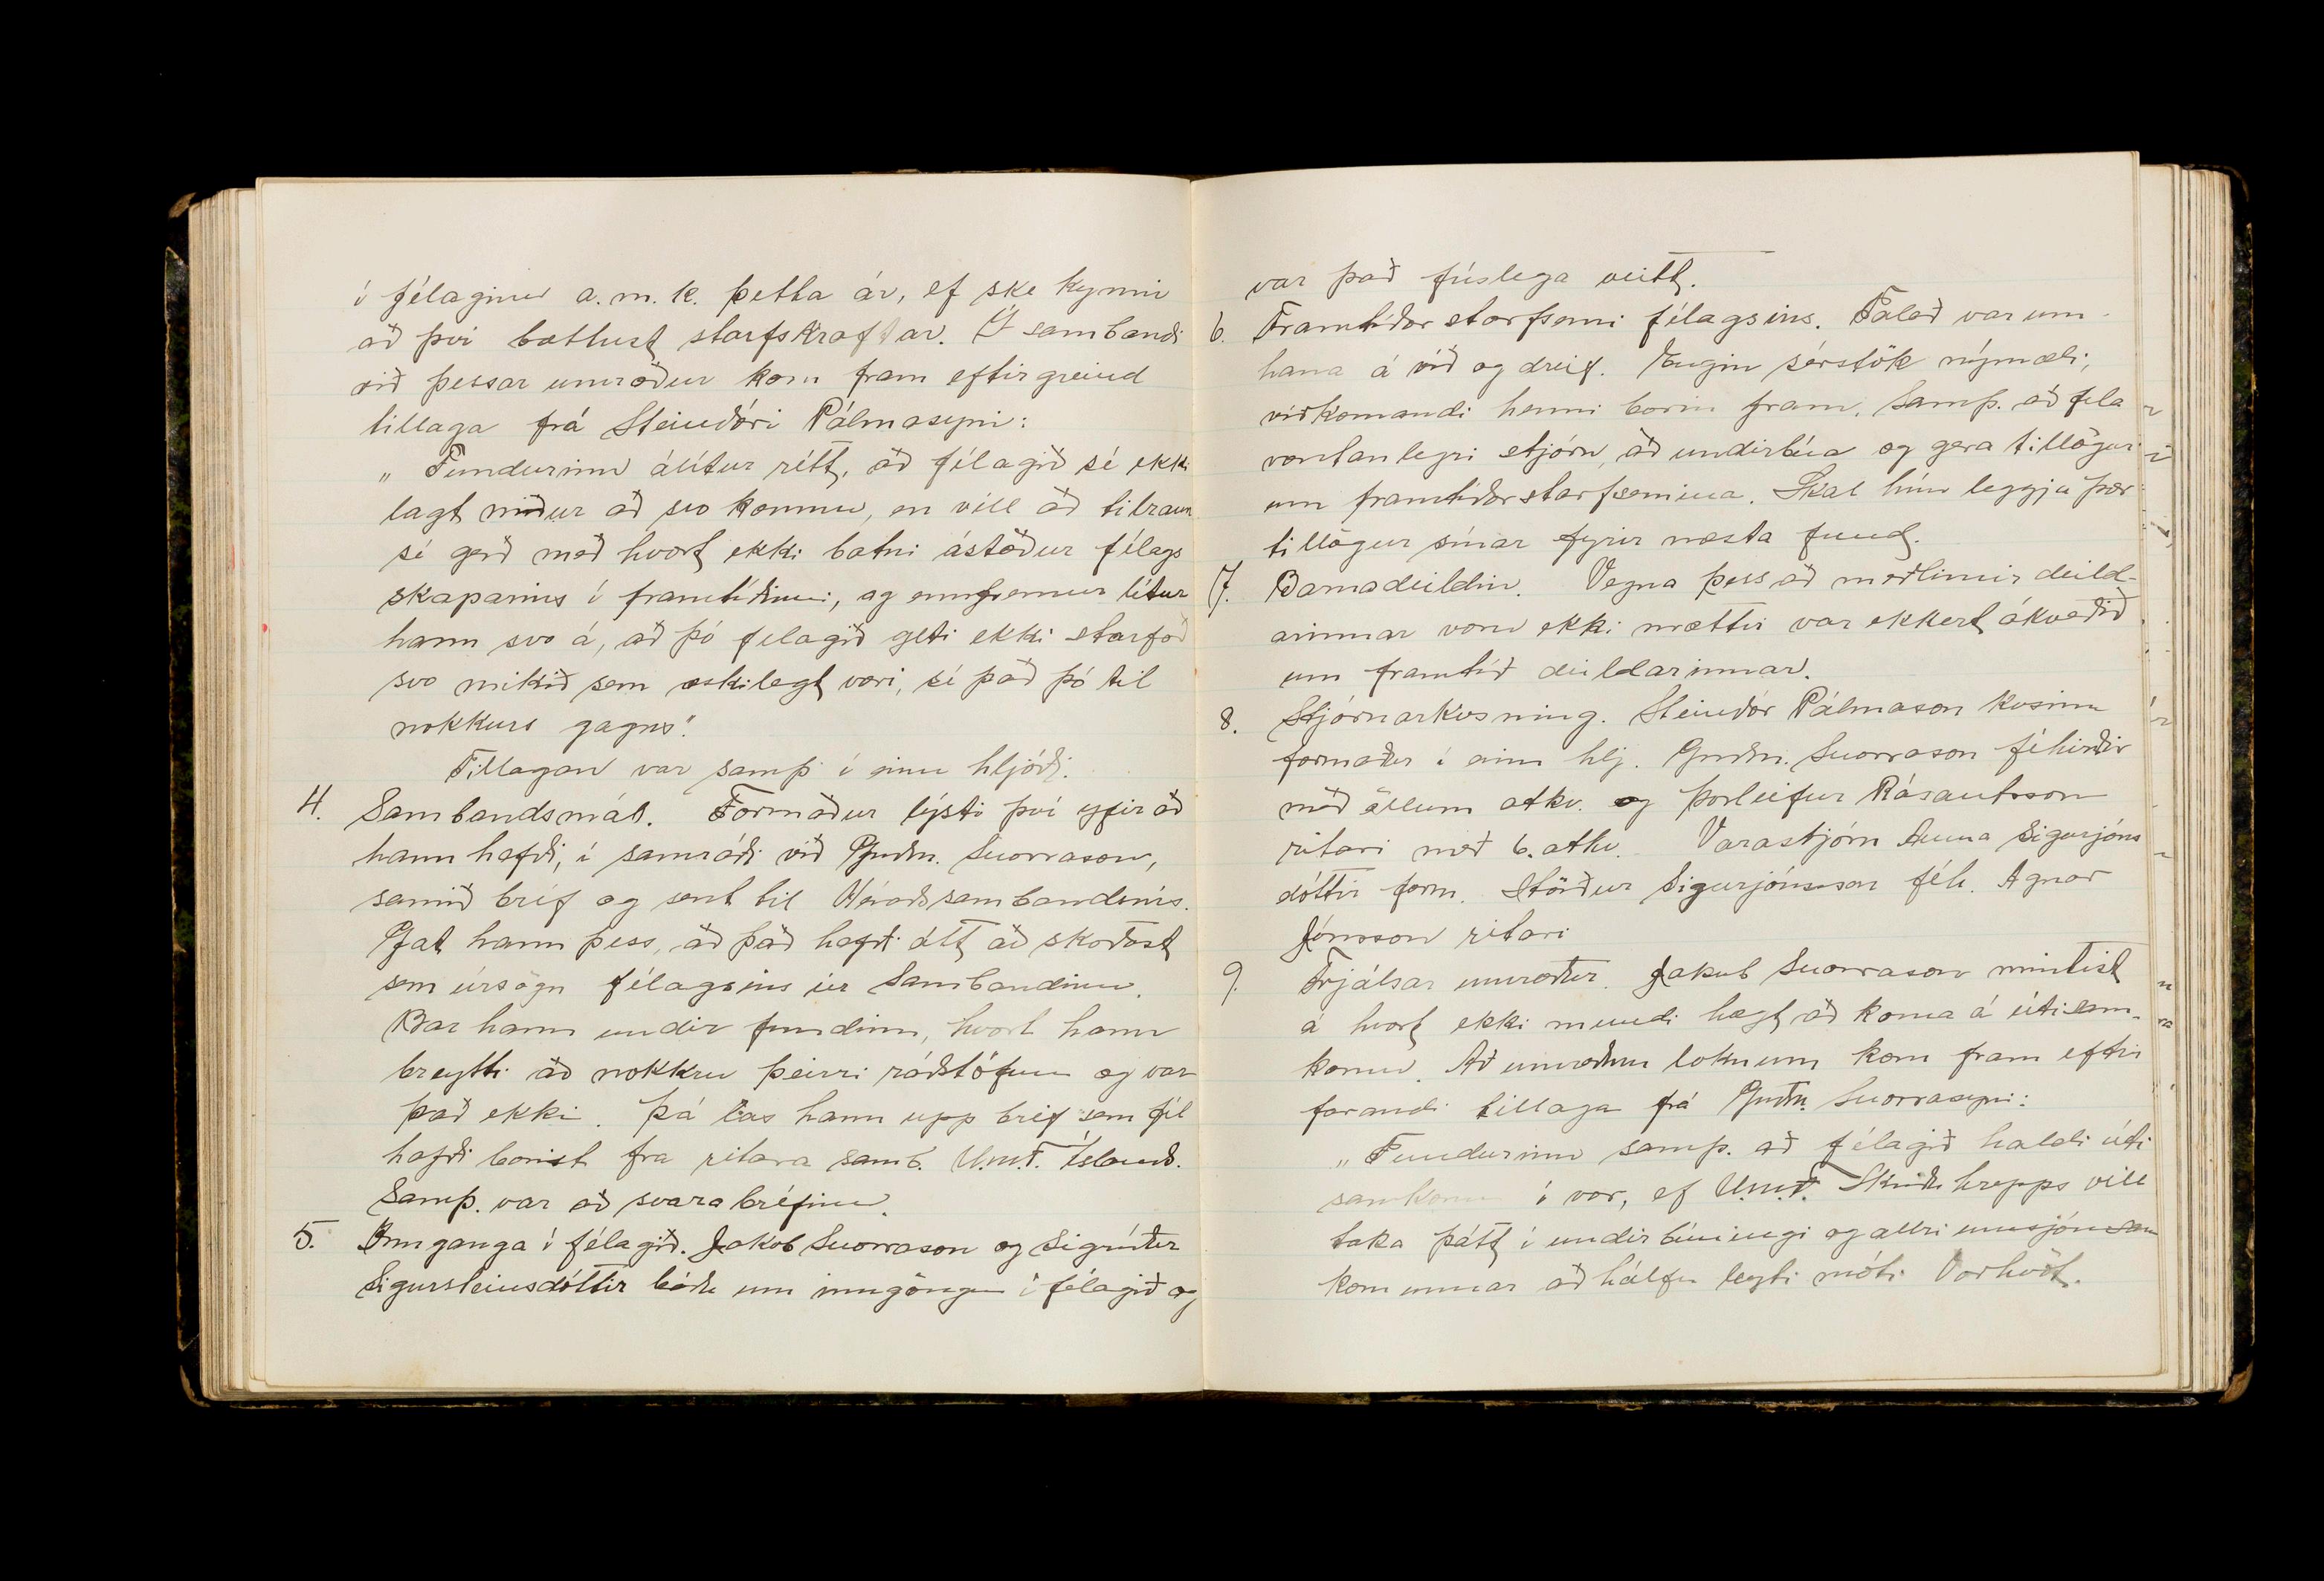 í félaginu a.m.k. þetta ár, ef ske kynni
að því bættust starfskraftar. Í sambandi
við þessar umræður kom fram eftirgreind
tillaga frá Steindóri Pálmasyni:
„Fundurinn álítur rétt, að félagið sé ekki
lagt niður að svo komnu, en vill að tilraun
sé gerð með hvort ekki batni ástæður félags
skaparins í framtíðinni, og ennfremur lítur
hann svo á, að þó félagið geti ekki starfað
svo mikið sem æskilegt væri, sé það þó til
nokkurs gagns".
Tillagan var samþ. í einu hljóði.
4. Sambandsmál. Formaður lýsti því yfir að
hann hefði, í samráði við Guðm. Snorrason,
samið bréf og sent til Héraðssambandsins.
Gat hann þess, að það hefði átt að skoðast
sem úrsögn félagsins úr Sambandinu.
Bar hann undir fundinn, hvort hann
breytti að nokkru þeirri ráðstöfun og var
það ekki. Þá las hann upp bréf sem fél
hafði borist fra ritara samb. U.m.f. Íslands.
Samþ. var að svara bréfinu.
5. Innganga í félagið. Jakob Snorrason og Sigríður
Sigursteinsdóttir báðu um inngöngu í félagið og
var það fúslega veitt.
6. Framtíðarstarfsemi félagsins. Talað var um
hana á víð og dreif. Engin sérstök nýmæli,
viðkomandi henni borin fram. Samþ. að fela
væntanlegri stjórn, að undirbúa og gera tillögur
um framtíðarstarfsemina. Skal hún leggja þær
tillögur sínar fyrir næsta fund.
7. Barnadeildin. Vegna þess að meðlimir deild-
arinnar voru ekki mættir var ekkert ákveðið
um framtíð deildarinnar.
8. Stjórnarkosning. Steindór Pálmason kosinn
formaður í einu hlj. Guðm. Snorrason féhirðir
með öllum atkv. og Þorleifur Rósantsson
ritari með 6. atkv. Varastjórn Anna Sigurjóns
dóttir form. Höskuldur Sigurjónsson féh. Agnar
Jónsson ritari
9. Frjálsar umræður. Jakob Snorrason mintist
á hvort ekki mundi hægt að koma á útisam-
komu. Að umræðum loknum kom fram eftir
farandi tillaga frá Guðm. Snorrasyni:
„Fundurinn samþ. að félagið haldi úti
samkomu í vor, ef U.m.f. Skriðuhrepps vill
taka þátt í undirbúningi og allri umsjón sam
komunnar að hálfu leyti móti Vorhvöt.